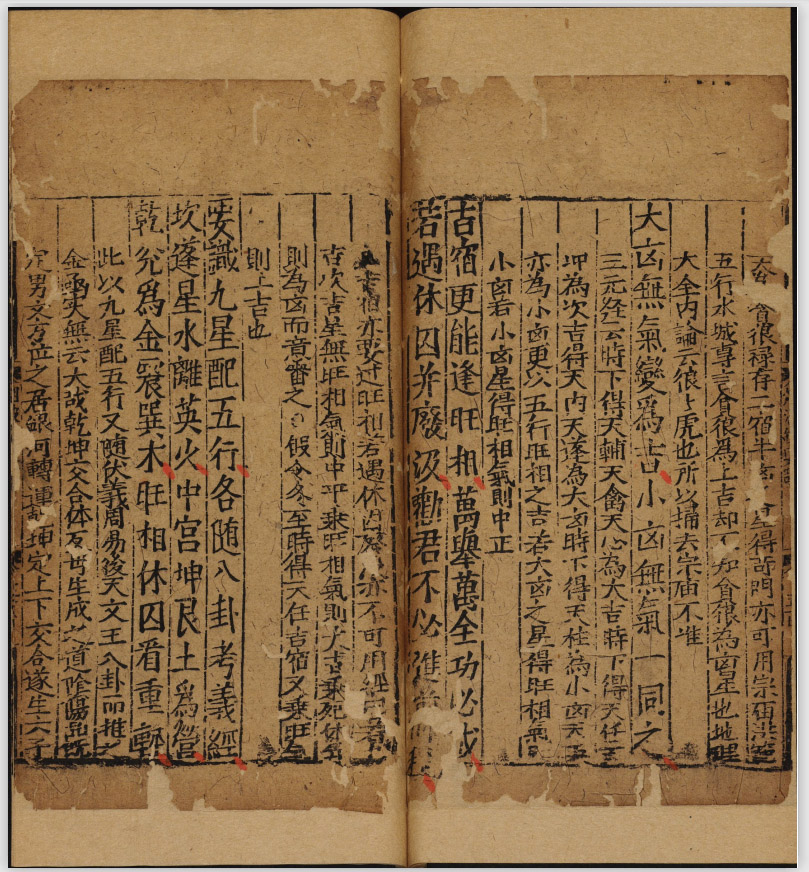 貪狼禄存二宿 星得奇門亦可用宗庙洪
五行水城專言貪狼為上吉却不知貪狼為凶星也地理
大全内論云狼と虎也所以埽去宗庙不准
大凶無氣變爲吉小凶無氣一同之
三元経云時下得天輔天禽天心為大吉時下得天任天
冲為次吉得天内天蓬為大凶時下得天柱為小凶天
亦為小凶更以五行旺相之吉若大凶之星得旺相氣
小凶若小凶星得旺相氣則中正
吉宿更能逢旺相萬舉萬全功必成
若遇休囚并廢没勸君不必進前程
吉宿亦要 旺相若遇休囚廢 亦不可用經
吉次吉星無旺相氣則中平乘旺相氣則大吉乘死休
則為凶而 審之 假令冬至時得天任吉宿又乗旺
則上吉也
要識九星配五行各随八卦考義經
坎蓬星水離英火中宮坤艮土爲營
乾兌爲金震巽木旺相休囚看重輕
此以九星配五行又随伏義周易後天文王八卦而推之
無云大哉乾坤交合体互 生成之道陰陽
定男女方位之居銀河轉運 坤定上下交合遂生六子